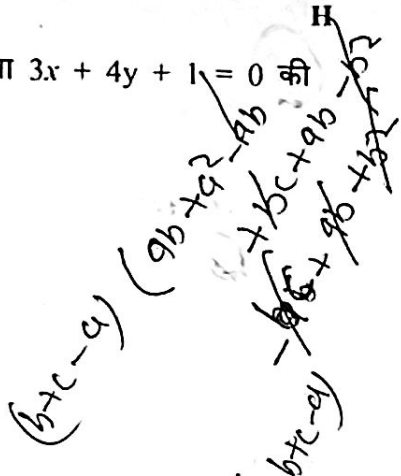 H
π 3x + 4y + 1 = 0 की
(b+c-a) (ab + a² - ab
+ bc + ab - b²
+ ab + b²
b+c-a)